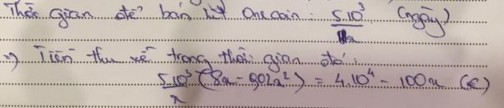 Thời gian để bán hết Onecoin : 5.10³/x (ngày)
=> Tiền thu về trong thời gian đó :
5.10³/x (8x - 0,02x²) = 4.10⁴ - 100x (€)